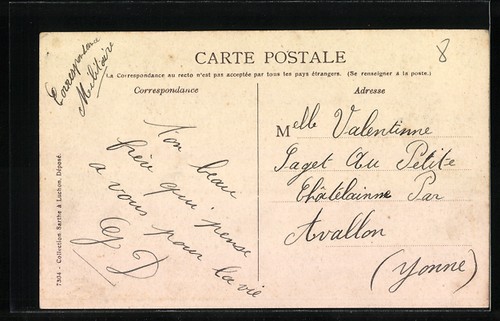 Correspondance
Militaire
CARTE POSTALE
La Correspondance au recto n'est pas acceptée par tous les pays étrangers. (Se renseigner à la poste.)
Correspondance
Ton beau
frère qui pense
a vous pour la vie
G D
Adresse
8
Melle Valentinne
Paget Au Petite
Châtelainne Par
Avallon
(Yonne)
7304 - Collection Sarthe à Luchon, Déposé.